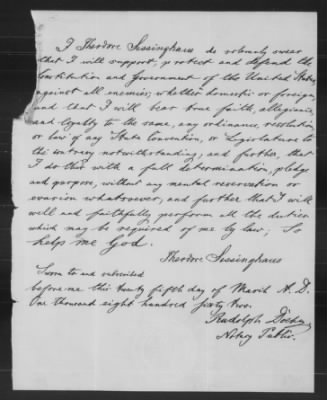 I Theodore Sessinghaus do solemnly swear
that I will support, protect and defend the
Constitution and Government of the United States
against all enemies, whether domestic or foreign,
and that I will bear true faith, allegiance
and loyalty to the same, any ordinance, resolution
or law of any State Convention, or Legislature to
the contrary notwithstanding, and further, that
I do this with a full determination, pledge
and purpose, without any mental reservation or
evasion whatsoever, and further that I will
well and faithfully perform all the duties
which may be required of me by law; So
help me God.
Theodore Sessinghaus
Sworn to and subscribed
before me this twenty fifth day of March A. D.
One thousand eight hundred sixty two.
Rudolph
Notary Public.